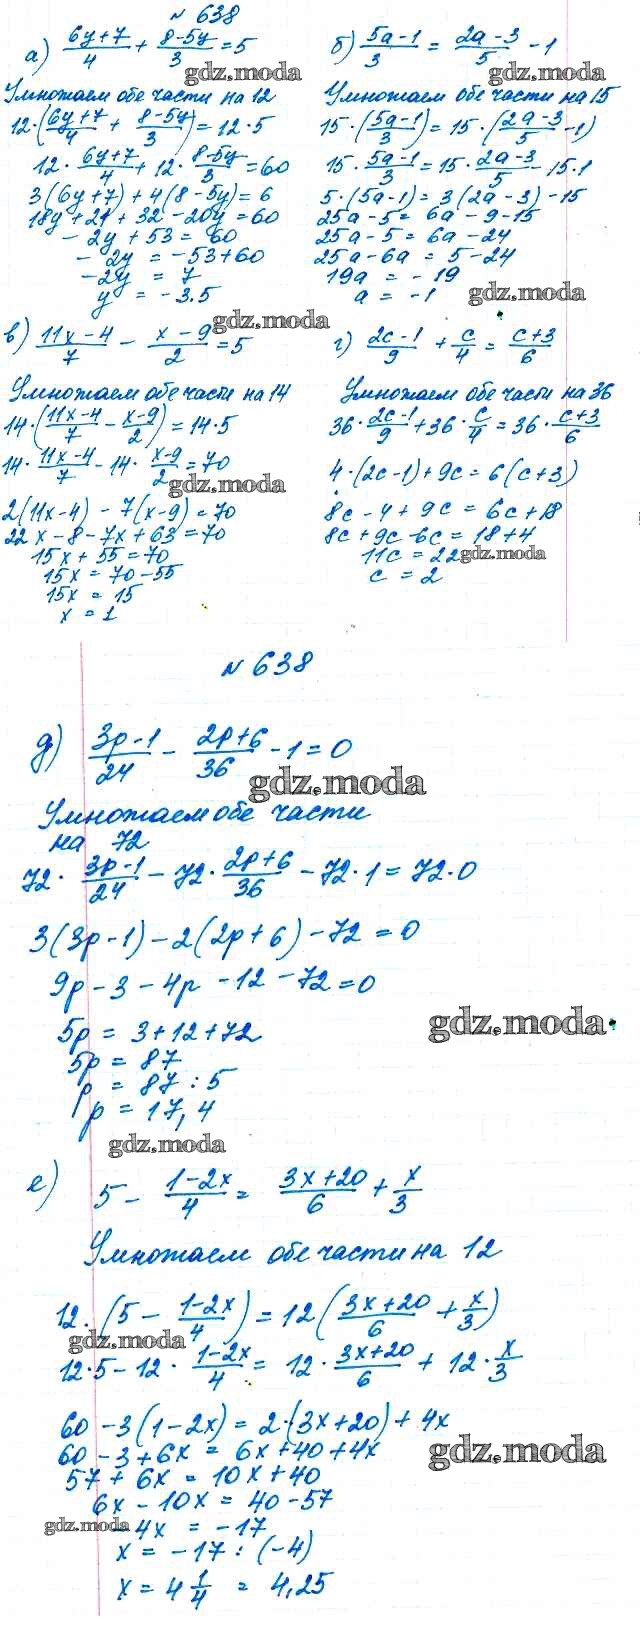 № 638
а) (6y+7)/4 + (8-5y)/3 = 5
gdz.moda
Умножаем обе части на 12
12·((6y+7)/4 + (8-5y)/3) = 12·5
12·(6y+7)/4 + 12·(8-5y)/3 = 60
3(6y+7)+4(8-5y)=6
18y+21+32-20y=60
-2y+53=60
-2y = -53+60
-2y = 7
y = -3.5
б) (5a-1)/3 = (2a-3)/5 - 1
gdz.moda
Умножаем обе части на 15
15·((5a-1)/3) = 15·((2a-3)/5 - 1)
15·(5a-1)/3 = 15·(2a-3)/5 - 15·1
5·(5a-1) = 3(2a-3)-15
25a-5 = 6a-9-15
25a-5 = 6a-24
25a-6a = 5-24
19a = -19
a = -1
gdz.moda
в) (11x-4)/7 - (x-9)/2 = 5
gdz.moda
Умножаем обе части на 14
14·((11x-4)/7 - (x-9)/2) = 14·5
14·(11x-4)/7 - 14·(x-9)/2 = 70
gdz.moda
2(11x-4) - 7(x-9) = 70
22x-8-7x+63=70
15x+55=70
15x = 70-55
15x = 15
x = 1
г) (2c-1)/9 + c/4 = (c+3)/6
Умножаем обе части на 36
36·(2c-1)/9 + 36·c/4 = 36·(c+3)/6
4·(2c-1)+9c = 6(c+3)
8c-4+9c = 6c+18
8c+9c-6c = 18+4
11c = 22
gdz.moda
c = 2
№ 638
д) (3p-1)/24 - (2p+6)/36 - 1 = 0
gdz.moda
Умножаем обе части
на 72
72·(3p-1)/24 - 72·(2p+6)/36 - 72·1 = 72·0
3(3p-1)-2(2p+6)-72=0
9p-3-4p-12-72=0
gdz.moda
5p = 3+12+72
5p = 87
p = 87:5
p = 17,4
gdz.moda
е) 5 - (1-2x)/4 = (3x+20)/6 + x/3
Умножаем обе части на 12
12·(5 - (1-2x)/4) = 12((3x+20)/6 + x/3)
gdz.moda
12·5-12·(1-2x)/4 = 12·(3x+20)/6 + 12·x/3
60-3(1-2x) = 2·(3x+20)+4x
60-3+6x = 6x+40+4x
gdz.moda
57+6x = 10x+40
6x-10x = 40-57
gdz.moda
-4x = -17
x = -17:(-4)
x = 4 1/4 = 4,25